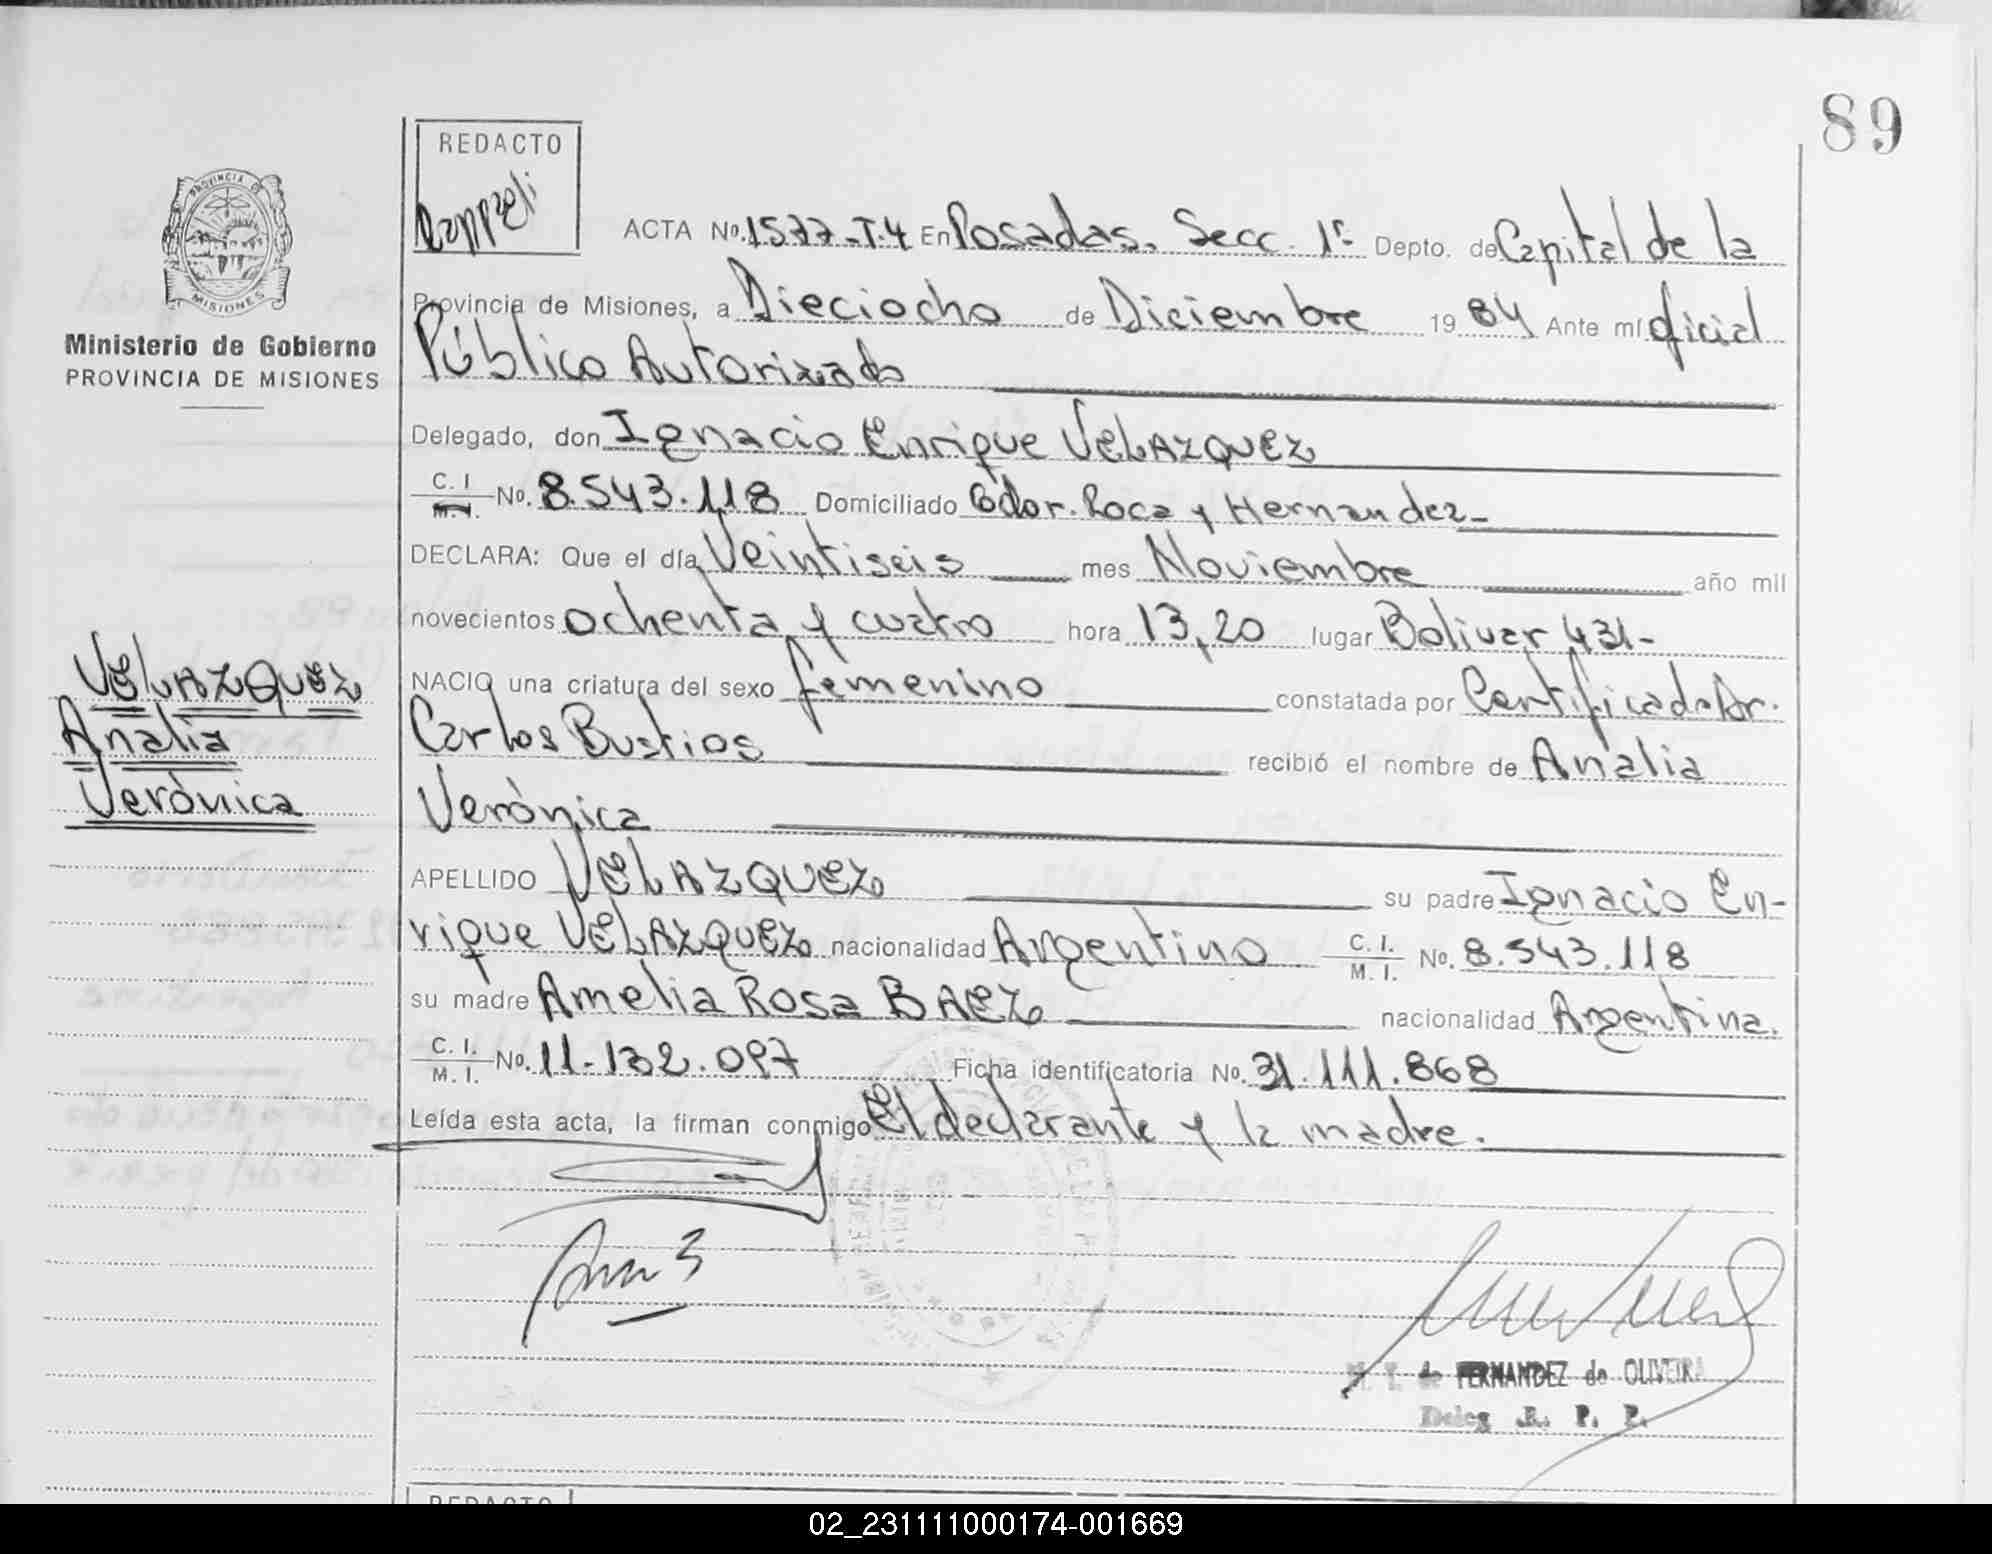 89
REDACTO
PROVINCIA DE
MISIONES
ACTA No. 1577-T.4 En Posadas. Secc. 1ª Depto. de Capital de la
Provincia de Misiones, a Dieciocho de Diciembre 19 84 Ante mí Oficial
Ministerio de Gobierno
PROVINCIA DE MISIONES
Público Autorizado
Delegado, don Ignacio Enrique VELAZQUEZ
C. I. M. I. No. 8.543.118 Domiciliado Gdor. Roca y Hernandez-
DECLARA: Que el día Veintiseis mes Noviembre año mil
novecientos ochenta y cuatro hora 13,20 lugar Bolivar 431-
VELAZQUEZ
Analia
Verónica
NACIO una criatura del sexo femenino constatada por Certificado Dr.
Carlos Bustios recibió el nombre de Analia
Verónica
APELLIDO VELAZQUEZ su padre Ignacio En-
rique VELAZQUEZ nacionalidad Argentino C. I. M. I. No. 8.543.118
su madre Amelia Rosa BAEZ nacionalidad Argentina.
C. I. M. I. No. 11-132.097 Ficha identificatoria No. 31.111.868
Leída esta acta, la firman conmigo El declarante y la madre.
FERNANDEZ de OLIVEIRA
Deleg R. P. P.
REDACTO
02_231111000174-001669